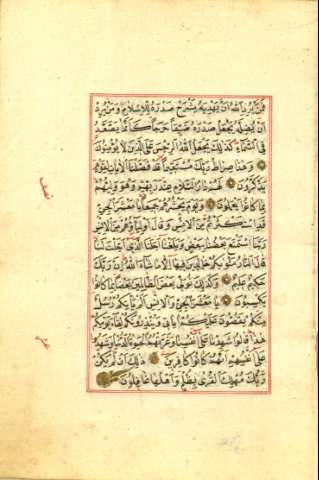 فَمَنْ يُرِدِ اللّٰهُ اَنْ يَهْدِيَهُ يَشْرَحْ صَدْرَهُ لِلْاِسْلَامِ وَمَنْ يُرِدْ
اَنْ يُضِلَّهُ يَجْعَلْ صَدْرَهُ ضَيِّقًا حَرَجًا كَاَنَّمَا يَصَّعَّدُ
فِي السَّمَاءِ كَذٰلِكَ يَجْعَلُ اللّٰهُ الرِّجْسَ عَلَى الَّذِينَ لَا يُؤْمِنُونَ
وَهٰذَا صِرَاطُ رَبِّكَ مُسْتَقِيمًا قَدْ فَصَّلْنَا الْاٰيَاتِ لِقَوْمٍ
يَذَّكَّرُونَ لَهُمْ دَارُ السَّلَامِ عِنْدَ رَبِّهِمْ وَهُوَ وَلِيُّهُمْ
بِمَا كَانُوا يَعْمَلُونَ وَيَوْمَ يَحْشُرُهُمْ جَمِيعًا يَا مَعْشَرَ الْجِنِّ
قَدِ اسْتَكْثَرْتُمْ مِنَ الْاِنْسِ وَقَالَ اَوْلِيَاؤُهُمْ مِنَ الْاِنْسِ
رَبَّنَا اسْتَمْتَعَ بَعْضُنَا بِبَعْضٍ وَبَلَغْنَا اَجَلَنَا الَّذِي اَجَّلْتَ لَنَا
قَالَ النَّارُ مَثْوٰيكُمْ خَالِدِينَ فِيهَا اِلَّا مَا شَاءَ اللّٰهُ اِنَّ رَبَّكَ
حَكِيمٌ عَلِيمٌ وَكَذٰلِكَ نُوَلِّي بَعْضَ الظَّالِمِينَ بَعْضًا بِمَا كَانُوا
يَكْسِبُونَ يَا مَعْشَرَ الْجِنِّ وَالْاِنْسِ اَلَمْ يَأْتِكُمْ رُسُلٌ
مِنْكُمْ يَقُصُّونَ عَلَيْكُمْ اٰيَاتِي وَيُنْذِرُونَكُمْ لِقَاءَ يَوْمِكُمْ
هٰذَا قَالُوا شَهِدْنَا عَلٰى اَنْفُسِنَا وَغَرَّتْهُمُ الْحَيٰوةُ الدُّنْيَا وَشَهِدُوا
عَلٰى اَنْفُسِهِمْ اَنَّهُمْ كَانُوا كَافِرِينَ ذٰلِكَ اَنْ لَمْ يَكُنْ
رَبُّكَ مُهْلِكَ الْقُرٰى بِظُلْمٍ وَاَهْلُهَا غَافِلُونَ